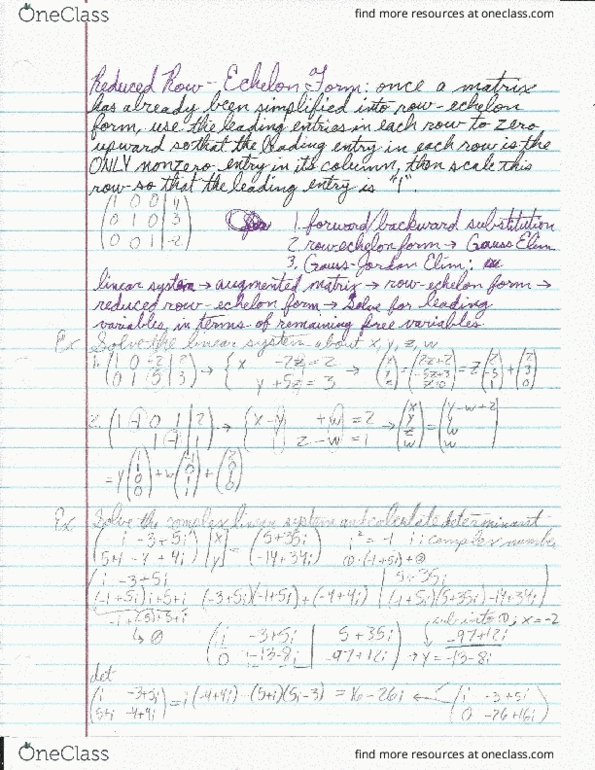 OneClass
find more resources at oneclass.com
Reduced Row-Echelon Form: once a matrix
has already been simplified into row-echelon
form, use the leading entries in each row to zero
upward so that the leading entry in each row is the
ONLY nonzero entry in its column, then scale this
row so that the leading entry is "1".
(1 0 0 | 4
0 1 0 | 3
0 0 1 | -2)
1. forward/backward substitution
2. row echelon form → Gauss Elim
3. Gauss-Jordan Elim:
linear system → augmented matrix → row-echelon form →
reduced row-echelon form → Solve for leading
variables, in terms of remaining free variables.
Ex Solve the linear system about x, y, z, w
1. (1 0 -2 | 2
0 1 5 | 3) → { x -2z = 2
y +5z = 3 → (x y z) = (2z+2 -5z+3 z+0) = z(2 -5 1) + (2 3 0)
2. (1 -1 0 1 | 2
1 -1 | 1) → { x-y +w = 2
z-w = 1 → (x y z w) = (y-w+2
= y(1 1 0 0) + w(-1 0 1 1) + (2 0 1 0)
Ex Solve the complex linear system and calculate determinant
(i -3+5i
5+i -4+4i) (x y) = (5+35i
-14+34i) i² = -1 i: complex number
① · (-1+5i) + ②
(i -3+5i | 5+35i
(-1+5i)i+5+i (-3+5i)(-1+5i)+(-4+4i) | (-1+5i)(5+35i)-14+34i)
→ 0
sub into ①; x = -2
(i -3+5i | 5+35i
0 -13-8i | -97+12i) → y = -97+12i
-13-8i
det
(i -3+5i
5+i -4+4i) = i(-4+4i) - (5+i)(5i-3) = 16-26i ← (i -3+5i
0 -26+16i)
OneClass
find more resources at oneclass.com